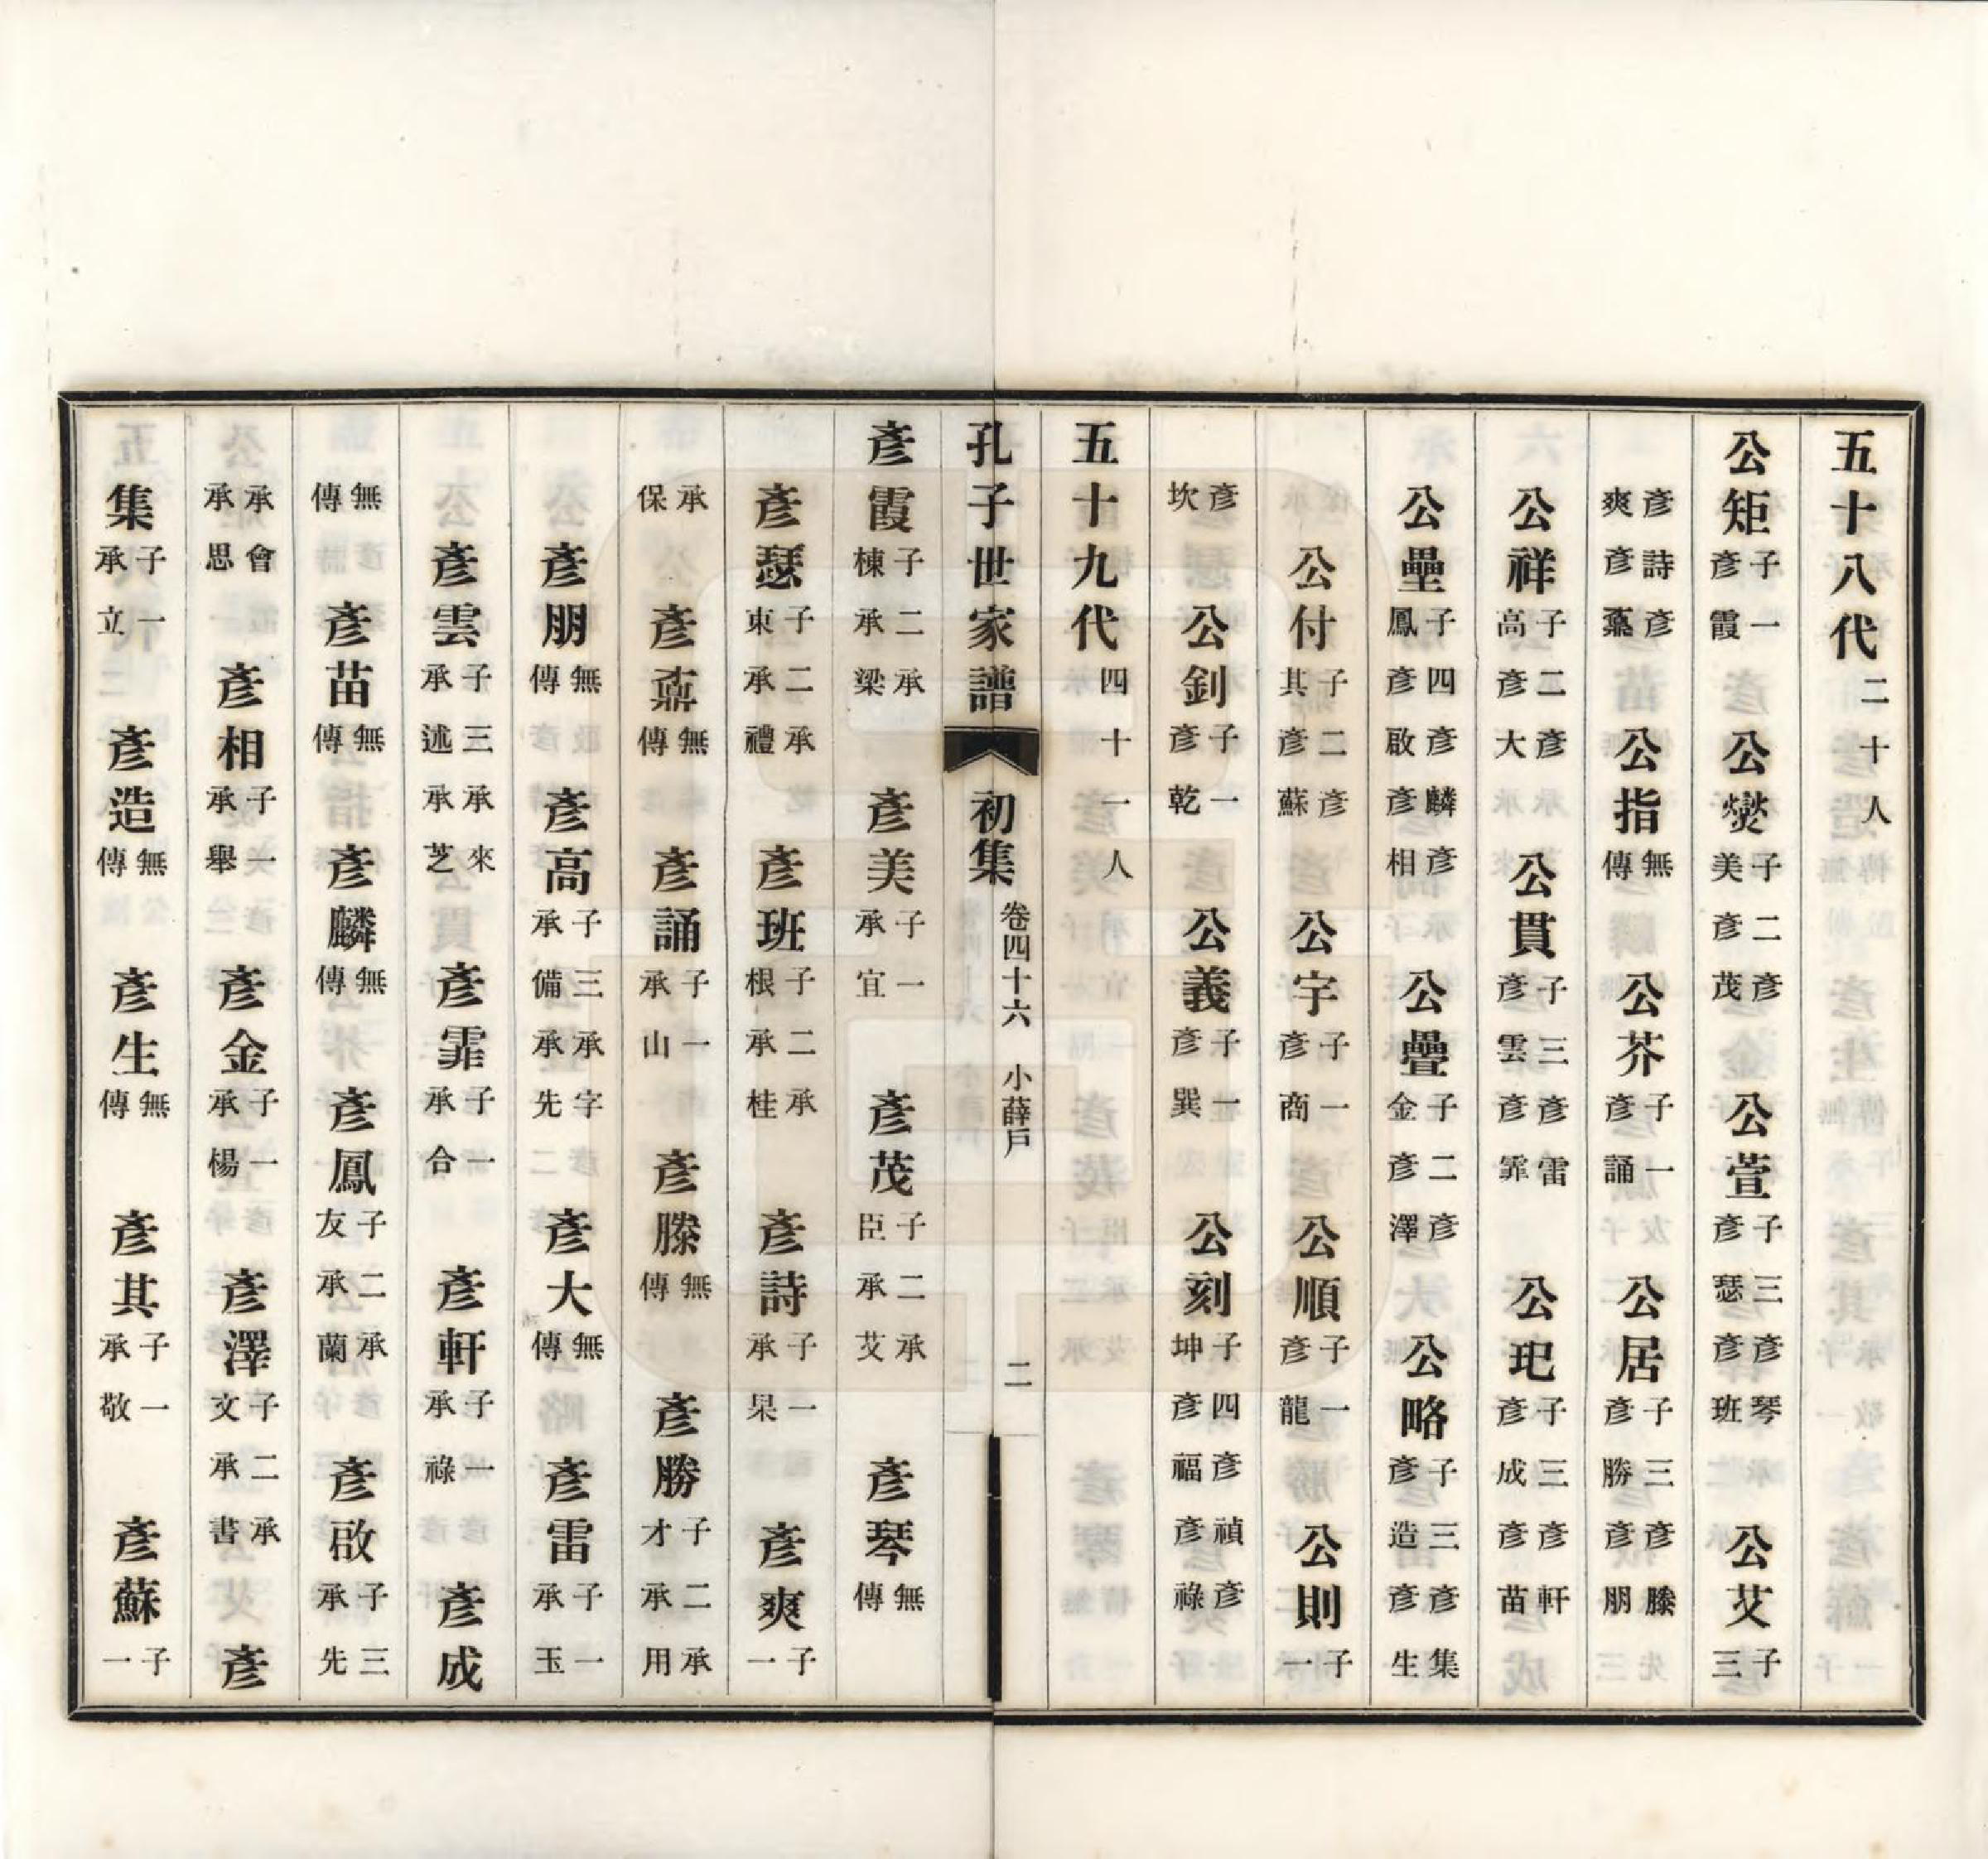 五十八代二十人
公矩子一彥霞 公燮子二彥美彥茂 公萱子三彥瑟彥琴彥班 公艾子三
彥詩彥爽彥鼐 公指無傳 公芥子一彥誦 公居子三彥勝彥滕彥朋
公祥子二彥高彥大 公貫子三彥雲彥雷彥霏 公玘子三彥成彥軒彥苗
公壘子四彥鳳彥啟彥麟彥相 公疊子二彥金彥澤 公略子三彥造彥集彥生
公付子二彥其彥蘇 公宇子一彥商 公順子一彥龍 公則子一
彥坎 公釗子一彥乾 公義子一彥巽 公刻子四彥坤彥福彥禎彥祿
五十九代四十一人
孔子世家譜 初集 卷四十六 小薛戶 二
彥霞子二承棟承梁 彥美子一承宜 彥茂子二承臣承艾 彥琴無傳
彥瑟子二承東承禮 彥班子二承根承桂 彥詩子一承杲 彥爽子一
承保 彥鼐無傳 彥誦子一承山 彥滕無傳 彥勝子二承才承用
彥朋無傳 彥高子三承字承備承先 彥大無傳 彥雷子一承玉
彥雲子三承來承述承芝 彥霏子一承合 彥軒子一承祿 彥成
無傳 彥苗無傳 彥麟無傳 彥鳳子二承友承蘭 彥啟子三承先
承會承思 彥相子一承舉 彥金子一承楊 彥澤子二承文承書 彥
集子一承立 彥造無傳 彥生無傳 彥其子一承敬 彥蘇子一